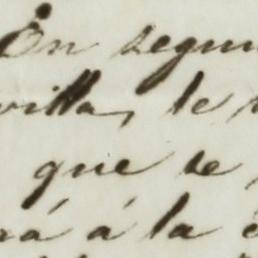 En segun
villa, le
que se
rá á la